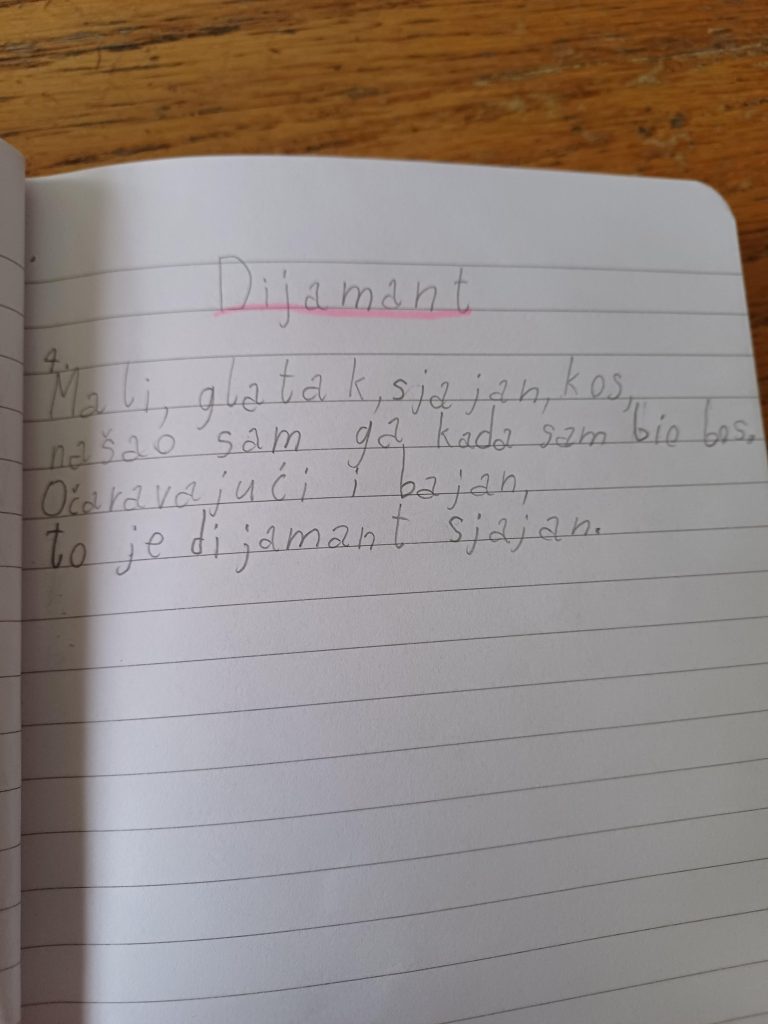 Dijamant
4.
Mali, glatak, sjajan, kos,
našao sam ga kada sam bio bos.
Očaravajući i bajan,
to je dijamant sjajan.